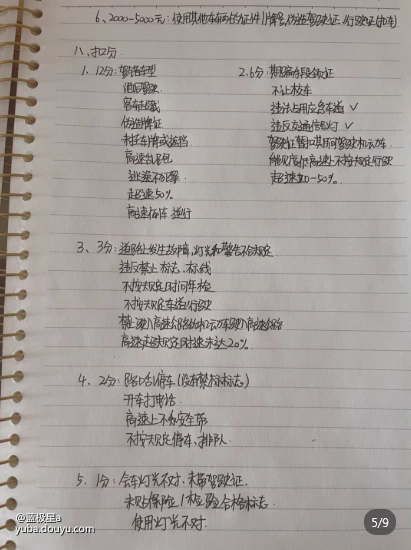 6、2000-5000元: 使用其他车辆的证件/牌照,伪造驾驶证、行驶证(扣车)
八、扣分
1、12分: 驾驶
酒后驾驶
客车超载
伪造牌证
高速
逃逸不犯罪
超速50%
高速倒车 逆行
2、6分:
不让校车
违法占用应急车道 ✓
违反交通信号灯 ✓
驾驶证暂扣期间驾驶机动车
能见度低高速上不按规定行驶
超速20-50%
3、3分: 道路上发生故障,灯光和警告不合规定
违反禁止标志、标线
不按规定时间年检
不按规定车道行驶
高速 规定时速未达20%
4、2分: 路口停车(
开车打电话
高速上不系安全带
不按规定停车、排队
5、1分: 会车灯光不对、未带驾驶证
未贴保险/检验合格标志
使用灯光不对
@蓝极星a
yuba.douyu.com
5/9